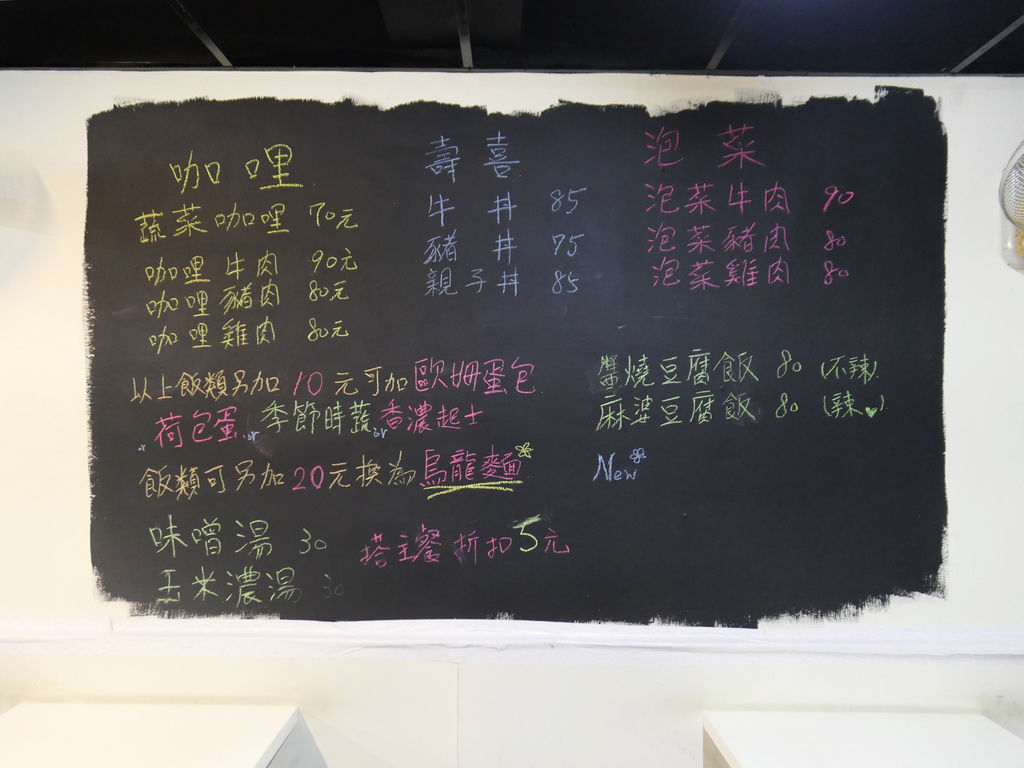 咖哩
蔬菜咖哩 70元
咖哩牛肉 90元
咖哩豬肉 80元
咖哩雞肉 80元
壽喜
牛丼 85
豬丼 75
親子丼 85
泡菜
泡菜牛肉 90
泡菜豬肉 80
泡菜雞肉 80
以上飯類另加10元可加歐姆蛋包
or 荷包蛋 or 季節時蔬 or 香濃起士
飯類可另加20元換為烏龍麵
醬燒豆腐飯 80 (不辣)
麻婆豆腐飯 80 (辣♥)
New
味噌湯 30
玉米濃湯 30
搭主餐折扣5元